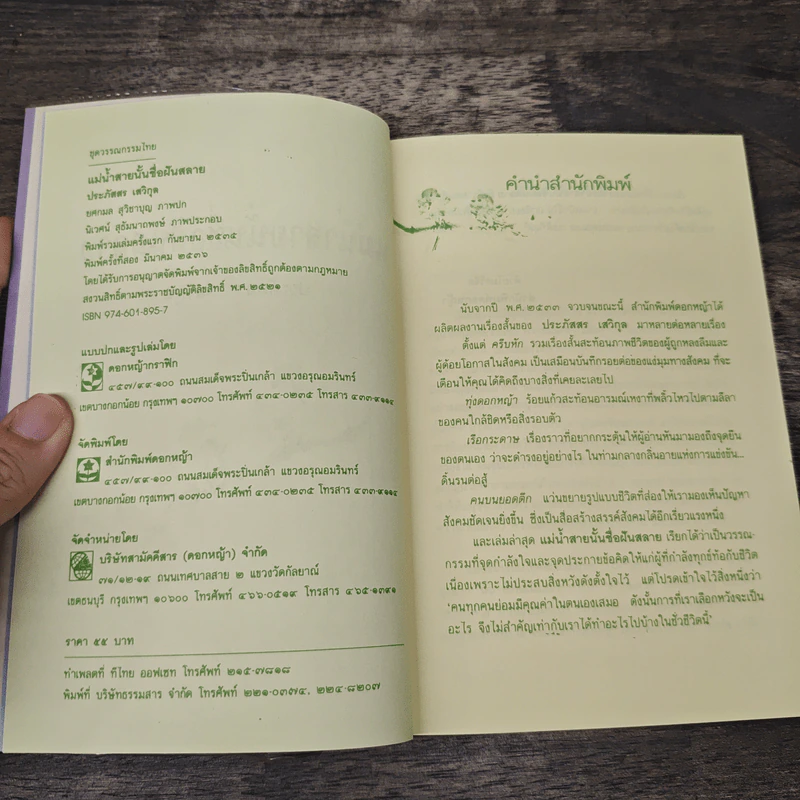 ชุดวรรณกรรมไทย
แม่น้ำสายนั้นชื่อฝันสลาย
ประภัสสร เสวิกุล
ยศกมล สุวิชาบุญ ภาพปก
นิเวศน์ สุธัมนาถพงษ์ ภาพประกอบ
พิมพ์รวมเล่มครั้งแรก กันยายน ๒๕๓๔
พิมพ์ครั้งที่สอง มีนาคม ๒๕๓๖
โดยได้รับการอนุญาตจัดพิมพ์จากเจ้าของลิขสิทธิ์ถูกต้องตามกฎหมาย
สงวนสิทธิ์ตามพระราชบัญญัติลิขสิทธิ์ พ.ศ.๒๕๒๑
ISBN 974-601-895-7
แบบปกและรูปเล่มโดย
ดอกหญ้ากราฟิก
๔๕๗/๙๙-๑๐๐ ถนนสมเด็จพระปิ่นเกล้า แขวงอรุณอมรินทร์
เขตบางกอกน้อย กรุงเทพฯ ๑๐๗๐๐ โทรศัพท์ ๔๓๔-๐๒๓๕ โทรสาร ๔๓๓-๙๑๑๔
จัดพิมพ์โดย
สำนักพิมพ์ดอกหญ้า
๔๕๗/๙๙-๑๐๐ ถนนสมเด็จพระปิ่นเกล้า แขวงอรุณอมรินทร์
เขตบางกอกน้อย กรุงเทพฯ ๑๐๗๐๐ โทรศัพท์ ๔๓๔-๐๒๓๕ โทรสาร ๔๓๓-๙๑๑๔
จัดจำหน่ายโดย
บริษัทสามัคคีสาร (ดอกหญ้า) จำกัด
๗๑/๑๒-๑๙ ถนนเทศบาลสาย ๒ แขวงวัดกัลยาณ์
เขตธนบุรี กรุงเทพฯ ๑๐๖๐๐ โทรศัพท์ ๔๖๖-๐๕๑๙ โทรสาร ๔๖๕-๑๓๙๑
ราคา ๕๕ บาท
ทำเพลตที่ ทีไทย ออฟเซท โทรศัพท์ ๒๑๕-๗๘๑๘
พิมพ์ที่ บริษัทธรรมสาร จำกัด โทรศัพท์ ๒๒๑-๐๓๗๔, ๒๒๔-๘๒๐๗
คำนำสำนักพิมพ์
นับจากปี พ.ศ.๒๕๓๓ จวบจนขณะนี้ สำนักพิมพ์ดอกหญ้าได้
ผลิตผลงานเรื่องสั้นของ ประภัสสร เสวิกุล มาหลายต่อหลายเรื่อง
ตั้งแต่ ครีบหัก รวมเรื่องสั้นสะท้อนภาพชีวิตของผู้ถูกหลงลืมและ
ผู้ด้อยโอกาสในสังคม เป็นเสมือนบันทึกรอยต่อของแง่มุมทางสังคม ที่จะ
เตือนให้คุณได้คิดถึงบางสิ่งที่เคยละเลยไป
ทุ่งดอกหญ้า ร้อยแก้วสะท้อนอารมณ์เหงาที่พลิ้วไหวไปตามลีลา
ของคนใกล้ชิดหรือสิ่งรอบตัว
เรือกระดาษ เรื่องราวที่อยากกระตุ้นให้ผู้อ่านหันมามองถึงจุดยืน
ของตนเอง ว่าจะดำรงอยู่อย่างไร ในท่ามกลางกลิ่นอายแห่งการแข่งขัน...
ดิ้นรนต่อสู้
คนบนยอดตึก แว่นขยายรูปแบบชีวิตที่ส่องให้เรามองเห็นปัญหา
สังคมชัดเจนยิ่งขึ้น ซึ่งเป็นสื่อสร้างสรรค์สังคมได้อีกเรี่ยวแรงหนึ่ง
และเล่มล่าสุด แม่น้ำสายนั้นชื่อฝันสลาย เรียกได้ว่าเป็นวรรณ-
กรรมที่จุดกำลังใจและจุดประกายข้อคิดให้แก่ผู้ที่กำลังทุกข์ท้อกับชีวิต
เนื่องเพราะไม่ประสบสิ่งหวังดังตั้งใจไว้ แต่โปรดเข้าใจไว้สิ่งหนึ่งว่า
'คนทุกคนย่อมมีคุณค่าในตนเองเสมอ ดังนั้นการที่เราเลือกหวังจะเป็น
อะไร จึงไม่สำคัญเท่ากับเราได้ทำอะไรไปบ้างในชั่วชีวิตนี้'